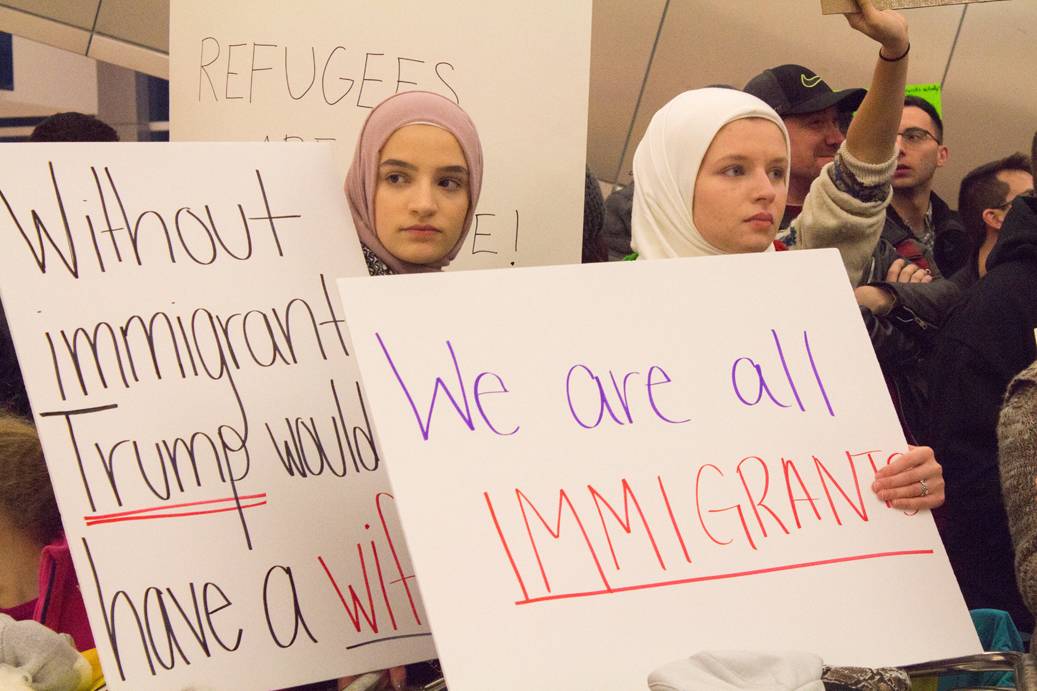 REFUGEES
ARE
E!
Without
immigrant
Trump would
have a wif
We are all
IMMIGRANTS